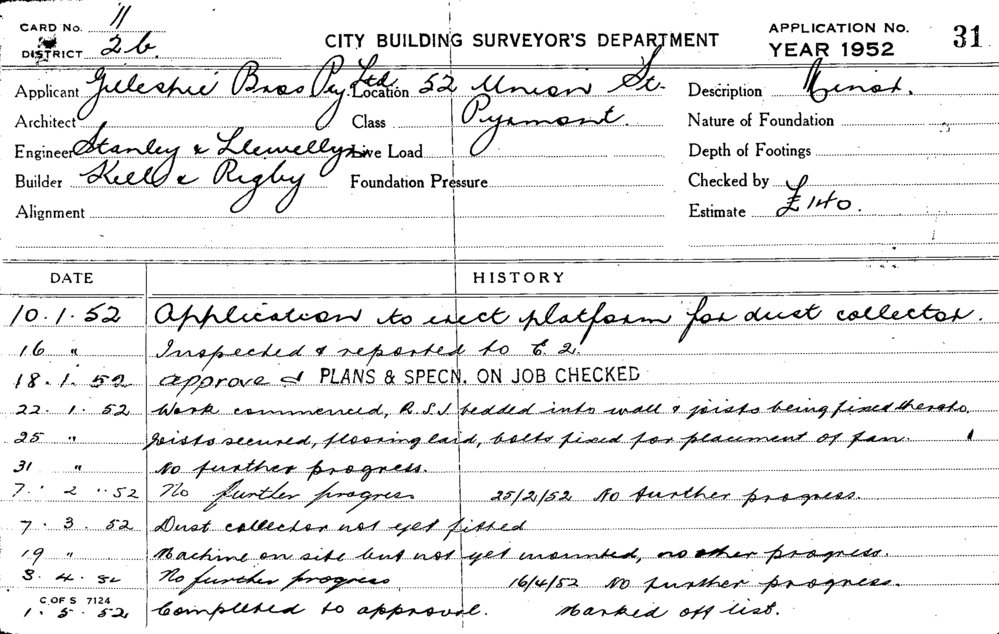 CARD No. 11
DISTRICT 2b
CITY BUILDING SURVEYOR'S DEPARTMENT
APPLICATION No. 31
YEAR 1952
Applicant Gillespie Bros Pty Ltd
Location 52 Union St.
Description Minor.
Architect
Class Pyrmont.
Nature of Foundation
Engineer Stanley & Llewellyn
Live Load
Depth of Footings
Builder Kell & Rigby
Foundation Pressure
Checked by
Alignment
Estimate £140.
DATE HISTORY
10.1.52 Application to erect platform for dust collector.
16 " Inspected & reported to E.2.
18.1.52 approved PLANS & SPECN. ON JOB CHECKED
22.1.52 Work commenced, R.S.J bedded into wall & joists being fixed thereto.
25 " Joists secured, flooring laid, bolts fixed for placement of fan.
31 " No further progress.
7. 2. 52 No further progress 25/2/52 No further progress.
7. 3. 52 Dust collector not yet fitted
19 " Machine on site but not yet mounted, no other progress.
3. 4. 52 No further progress 16/4/52 No further progress.
C OF S 7124
1. 5. 52 Completed to approval. Marked off list.